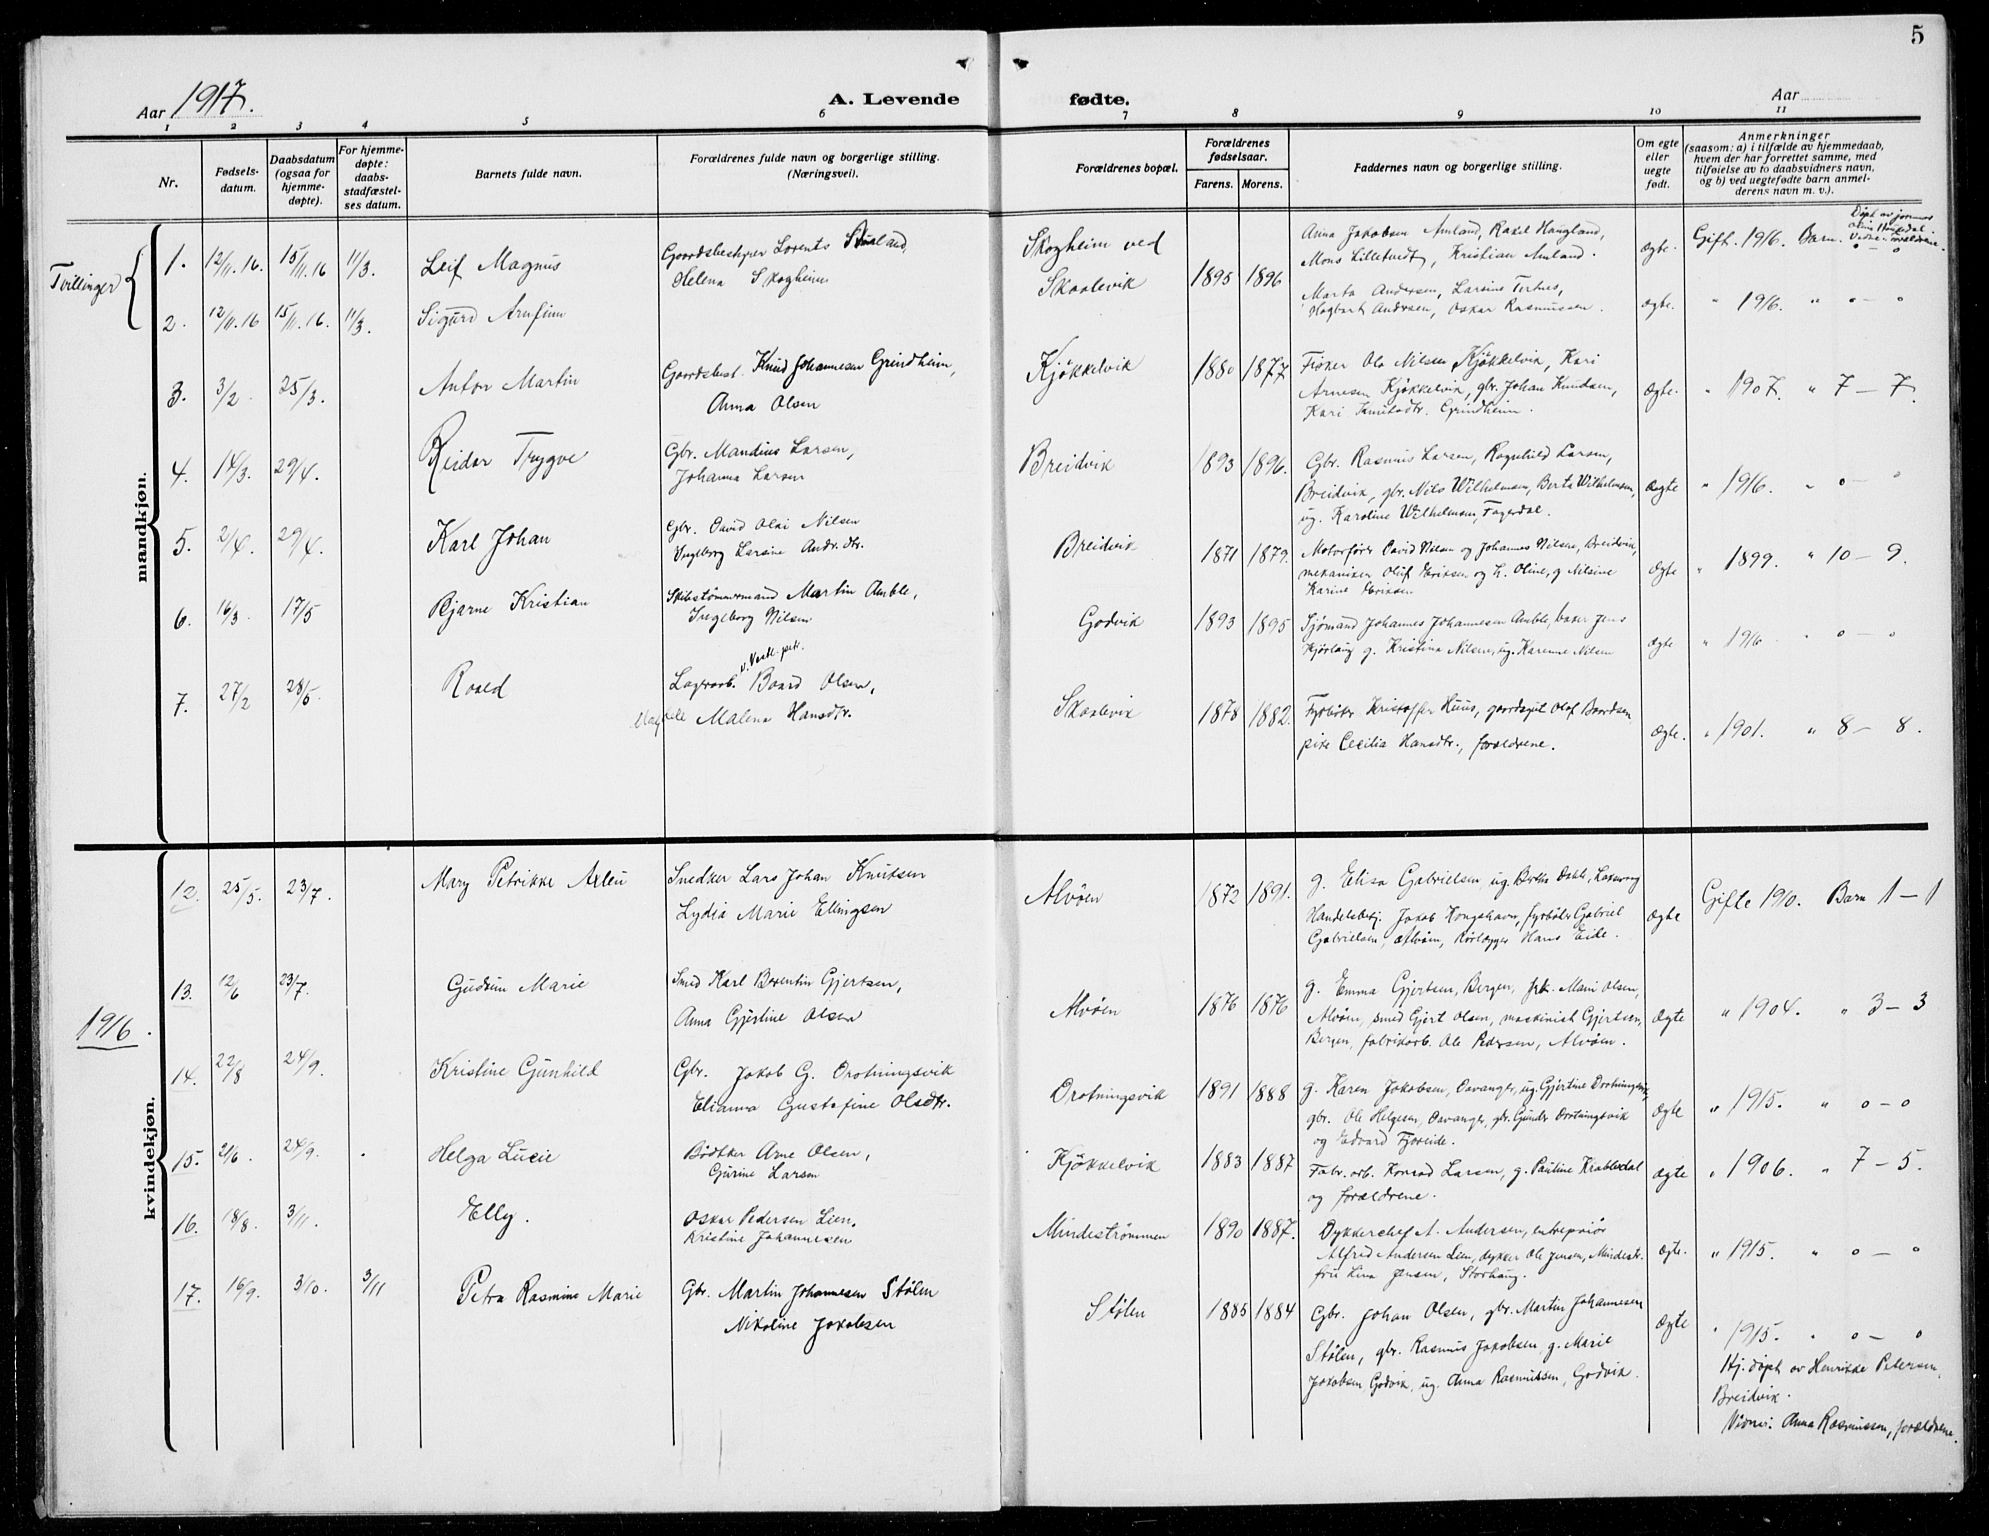 5
Aar 1917.
A. Levende fødte.
Aar
1 2 3 4 5 6 7 8 9 10 11
Nr.
Fødsels-
datum.
Daabsdatum
(ogsaa for
hjemme-
døpte).
For hjemme-
døpte:
daabs-
stadfæstel-
ses datum.
Barnets fulde navn.
Forældrenes fulde navn og borgerlige stilling.
(Næringsvei).
Forældrenes bopæl.
Forældrenes
fødselsaar.
Farens. Morens.
Faddernes navn og borgerlige stilling.
Om egte
eller
uegte
født.
Anmerkninger
(saasom: a) i tilfælde av hjemmedaab,
hvem der har forrettet samme, med
tilføielse av to daabsvidners navn,
og b) ved uegtefødte barn anmel-
derens navn m. v.).
mandkjøn.
Tvillinger
1. 12/11.16. 15/11.16 11/3. Leif Magnus
Gaardsbestyrer Lorents
Helena Skogheim
Skogheim ved
Skaalevik
1895 1896
Anna Jakobsen Amland, Rakel Haugland,
Mons Lilletvedt, Kristian Amland.
ægte. Gift. 1916. Barn. 0 — 0
2. 12/11.16 15/11.16. 11/3. Sigurd Arnfinn
Marta Andersen, Larsine Tertnes,
Hagbart Andersen, Oskar Rasmussen.
ægte. " 1916. " 0 — 0
3. 3/2. 25/3. Anton Martin
Gaardsbest. Knud Johannesen Grindheim,
Anna Olsen
Kjøkkelvik
1880 1877
Fisker Ole Nilsen Kjøkkelvik, Kari
Arnesen Kjøkkelvik, gbr. Johan Knudsen,
Kari Knutsdtr. Grindheim.
ægte. " 1907. " 7 — 7.
4. 14/3. 29/4. Reidar Trygve
Gbr. Mandius Larsen,
Johanna Larsen
Breidvik
1893 1896.
Gbr. Rasmus Larsen, Ragnhild Larsen,
Breidvik, gbr. Nils Wilhelmsen, Berta Wilhelmsen,
ug. Karoline Wilhelmsen, Fagerdal.
ægte " 1916. " 0 — 0
5. 2/4. 29/4. Karl Johan
Gbr. David Olai Nilsen
Ingeborg Larsine Andr.dtr.
Breidvik
1871 1879.
Motorfører David Nilsen og Johannes Nilsen, Breidvik,
mekaniker Oluf Eriksen og h. Oline, g Nilsine
Karine Eriksen
ægte " 1899. " 10 — 9.
6. 16/3. 17/5 Bjarne Kristian
Skibstømmermand Martin Amble,
Ingeborg Nilsen
Godvik
1893 1895
Sjømand Johannes Johannesen Amble, baker Jens
g. Kristina Nilsen, ug. Karenne Nilsen
ægte " 1916 " 0 — 0
7. 27/2 28/5 Roald
v. Vestl. petr.
Lagerarb. Baard Olsen,
Malena Hansdtr.
Skaalevik
1878 1882.
Fyrbøter Kristoffer Huus, gaardsgut Olaf Baardsen
pike Cecilia Hansdtr., forældrene.
ægte. " 1901. " 8 — 8.
kvindekjøn.
1916.
12. 25/5. 23/7. Mary Petrikke
Snedker Lars Johan Knutsen
Lydia Marie Ellingsen
Alvøen
1872 1891.
g. Elisa Gabrielsen, ug. Bertha Dahle, Laksevaag
Handelsbetj. Jakob Kongshavn, fyrbøter Gabriel
Gabrielsen, Alvøen, Rørlægger Hans Eide.
ægte Gifte 1910. Barn 1 — 1
13. 12/6 23/7. Gudrun Marie
Smed Karl Berentin Gjertsen,
Anna Gjertine Olsen
Alvøen
1876 1876
g. Emma Gjertsen, Bergen, frk. Marie Olsen,
Alvøen, smed Gjert Olsen, maskinist Gjertsen,
Bergen, fabrikarb. Ole Pedersen, Alvøen.
ægte " 1904. " 3 — 3
14. 22/8 24/9. Kristine Gunhild
Gbr. Jakob G. Drotningsvik
Elianna Gustafine Olsdtr.
Drotningsvik
1891 1888
g. Karen Jakobsen, Davanger, ug. Gjertine Drotningsvig,
gbr. Ole Helgesen, Davanger, gbr. Gunder Drotningsvik
og Edvard Fjæreide.
ægte " 1915. " 0 — 0
15. 21/6 24/9. Helga Lucie
Bødtker Arne Olsen,
Gurine Larsen
Kjøkkelvik
1883 1887
Fabr. arb. Konrad Larsen, g. Pauline Krabbedal
og forældrene.
ægte " 1906. " 7 — 5.
16. 18/8. 3/11. Elly.
Oskar Pedersen Lien,
Kristine Johannesen
Mindestrømmen
1890 1887.
Dykkerchef A. Andersen, entreprenør
Alfred Andersen Lien, dykker Ole Jensen, Mindestr.
fru Lina Jensen, Storhaug.
ægte. " 1915. " 0 — 0
17. 16/9. 3/10. 3/11 Petra Rasmine Marie
Gbr. Martin Johannesen Stølen
Nikoline Jakobsen
Stølen
1885 1884
Gbr. Johan Olsen, gbr. Martin Johannesen
Stølen, gbr. Rasmus Jakobsen, g. Marie
Jakobsen Godvik, ug. Anna Rasmussen, Godvik.
ægte " 1915. " 0 — 0
Hj.døpt av Henrikke Petersen,
Breidvik.
Vidner: Anna Rasmussen, forældrene.